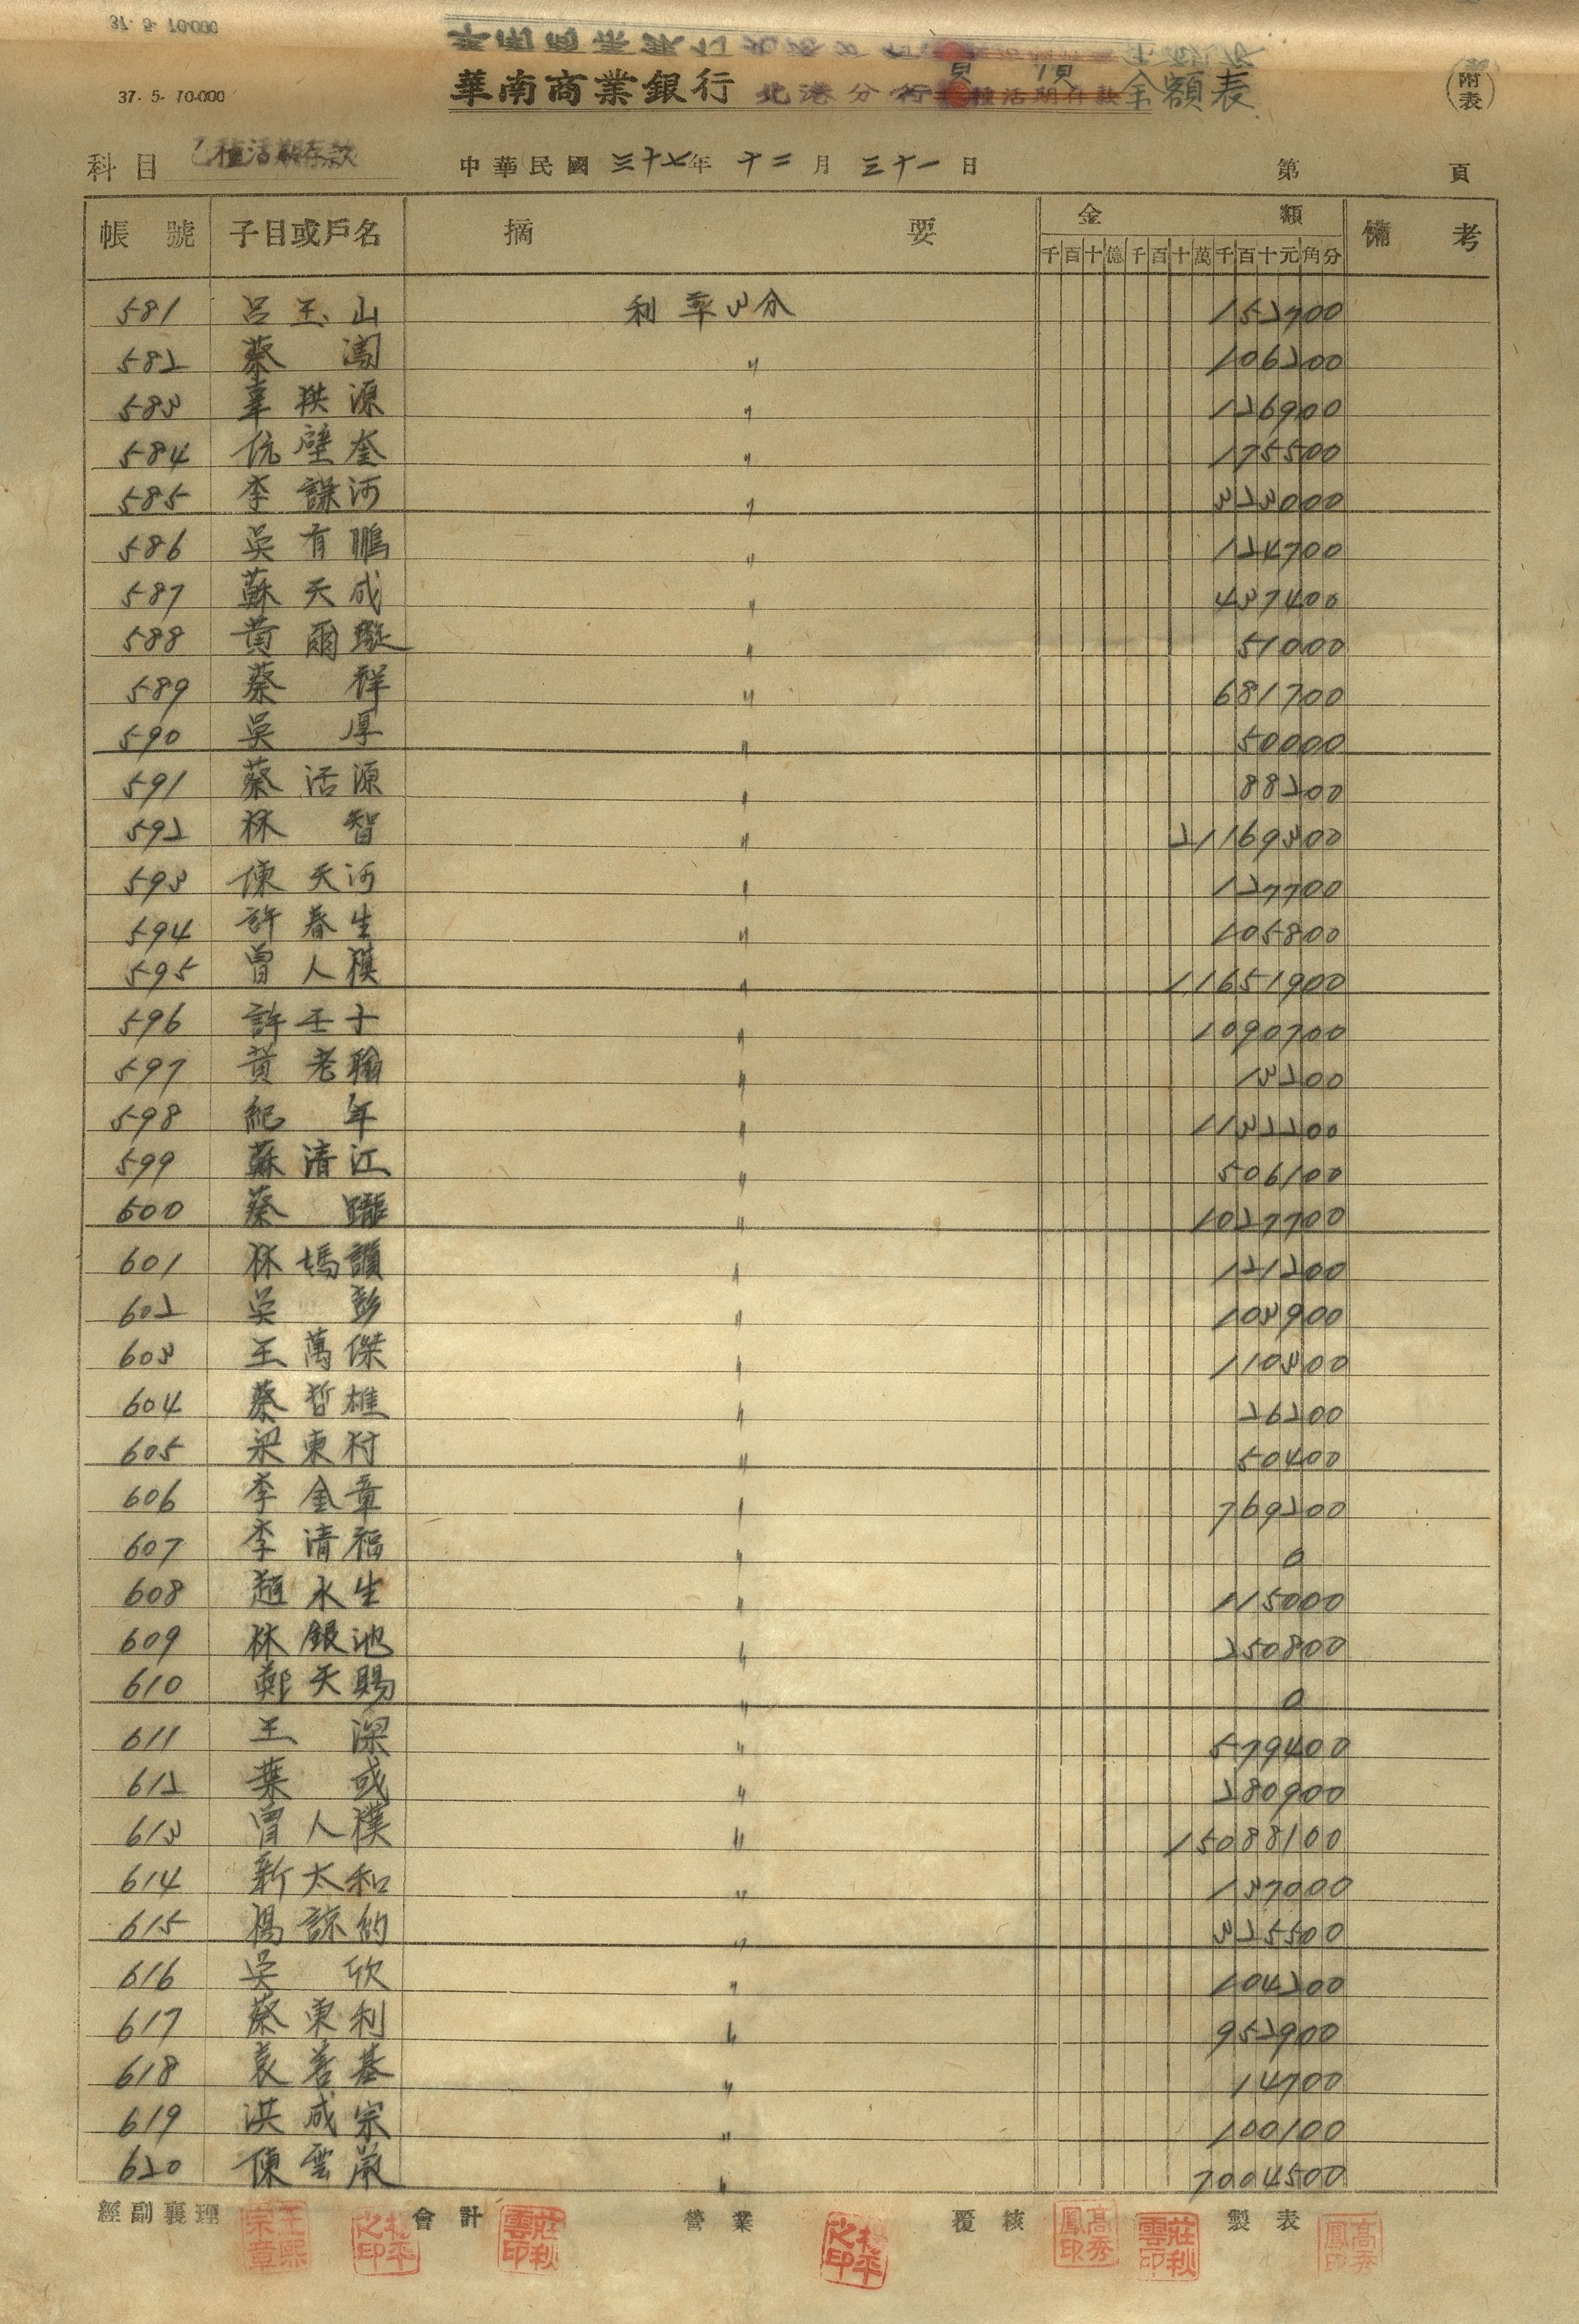 37. 5. 70.000
華南商業銀行 北港分行 負債金額表
附表
科目 乙種活期存款 中華民國 三十七年 十二月 三十一日 第 頁
帳號 子目或戶名 摘要 金額 備考
千百十億千百十萬千百十元角分
581 呂玉山 利率3分 152700
582 蔡 闊 〃 106200
583 辜拱源 〃 126900
584 伉壁奎 〃 175500
585 李謀河 〃 323000
586 吳有鵬 〃 124700
587 蘇天成 〃 437400
588 黃爾璇 〃 51000
589 蔡 祥 〃 681700
590 吳 厚 〃 50000
591 蔡活源 〃 88200
592 林 智 〃 21169300
593 陳天河 〃 127700
594 許春生 〃 105800
595 曾人模 〃 11651900
596 許壬子 〃 1090700
597 黃老翰 〃 13200
598 紀 年 〃 1132200
599 蘇清江 〃 506100
600 蔡 〃 1027700
601 林媽讚 〃 121200
602 吳 彭 〃 103900
603 王萬傑 〃 110300
604 蔡哲雄 〃 26200
605 梁東村 〃 50400
606 李金章 〃 769200
607 李清福 〃 0
608 趙水生 〃 115000
609 林銀池 〃 250800
610 鄭天賜 〃 0
611 王 深 〃 579400
612 葉 或 〃 280900
613 曾人樸 〃 15088100
614 新太和 〃 137000
615 楊諒約 〃 325500
616 吳 欣 〃 104200
617 蔡東利 〃 952900
618 袁善基 〃 14700
619 洪成宗 〃 100100
620 陳雲嚴 〃 7004500
經副襄理 會計 營業 覆核 製表
王熙宗章 莊秋雲印 高秀鳳印 莊秋雲印 高秀鳳印